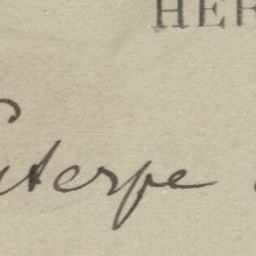 HER
Euterpe